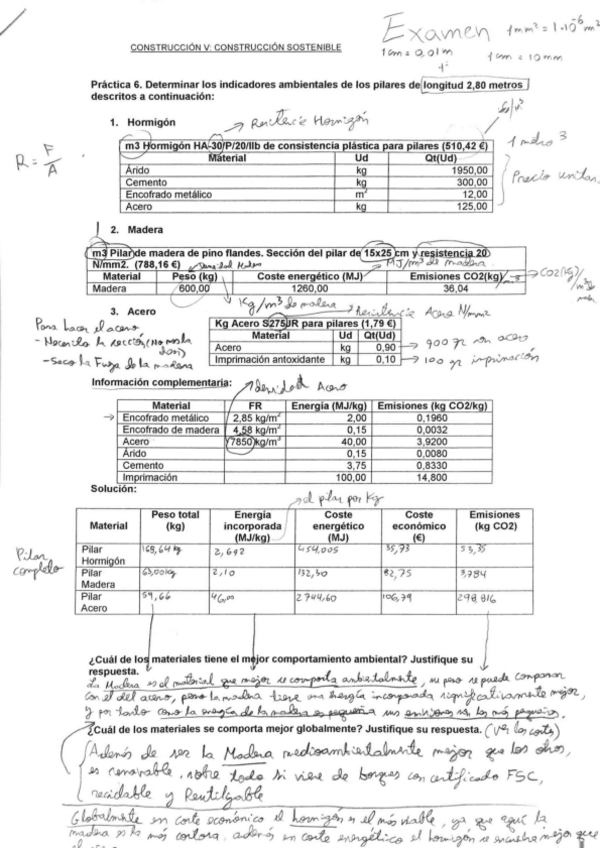 Examen
1mm² = 1·10⁻⁶ m²
CONSTRUCCIÓN V: CONSTRUCCIÓN SOSTENIBLE
1cm = 0,01m
1cm = 10mm
Práctica 6. Determinar los indicadores ambientales de los pilares de longitud 2,80 metros
descritos a continuación:
1. Hormigón → Resistencia Hormigón
R = F/A
m3 Hormigón HA-30/P/20/IIb de consistencia plástica para pilares (510,42 €)
1 metro 3
Material Ud Qt(Ud)
Árido kg 1950,00
Precio unitar.
Cemento kg 300,00
Encofrado metálico m² 12,00
Acero kg 125,00
2. Madera
m3 Pilar de madera de pino flandes. Sección del pilar de 15x25 cm y resistencia 20
N/mm2. (788,16 €) Densidad Madera MJ/m³ de madera
Material Peso (kg) Coste energético (MJ) Emisiones CO2(kg)
Madera 600,00 1260,00 36,04
CO2(kg)/
Kg/m³ de madera
3. Acero Resistencia Acero N/mm2
Para hacer el acero
- Necesito la sección (No me la dan)
- Saco la Fuerza de la madera
Kg Acero S275JR para pilares (1,79 €)
Material Ud Qt(Ud)
Acero kg 0,90 → 900 gr son acero
Imprimación antoxidante kg 0,10 → 100 gr imprimación
Información complementaria: densidad Acero
Material FR Energía (MJ/kg) Emisiones (kg CO2/kg)
Encofrado metálico 2,85 kg/m² 2,00 0,1960
Encofrado de madera 4,58 kg/m² 0,15 0,0032
Acero 7850 kg/m³ 40,00 3,9200
Árido 0,15 0,0080
Cemento 3,75 0,8330
Imprimación 100,00 14,800
Solución: el pilar por Kg
Material Peso total (kg) Energía incorporada (MJ/kg) Coste energético (MJ) Coste económico (€) Emisiones (kg CO2)
Pilar completo
Pilar Hormigón 168,64 kg 2,692 454,005 55,73 53,35
Pilar Madera 63,00 kg 2,10 132,30 82,75 3,784
Pilar Acero 59,66 46,00 2744,60 106,79 298,816
¿Cuál de los materiales tiene el mejor comportamiento ambiental? Justifique su
respuesta.
La Madera es el material que mejor se comporta ambientalmente, su peso se puede comparar
con el del acero, pero la madera tiene una energía incorporada significativamente mejor,
y por tanto como la energía de la madera es pequeña sus emisiones son las más pequeñas.
¿Cuál de los materiales se comporta mejor globalmente? Justifique su respuesta. (Ver los costes)
Además de ser la Madera medioambientalmente mejor que los otros,
es renovable, sobre todo si viene de bosques con certificado FSC,
reciclable y Reutilizable
Globalmente en coste económico el hormigón es el más viable, ya que aquí la
madera es la más costosa, además en coste energético el hormigón se encuentra mejor que